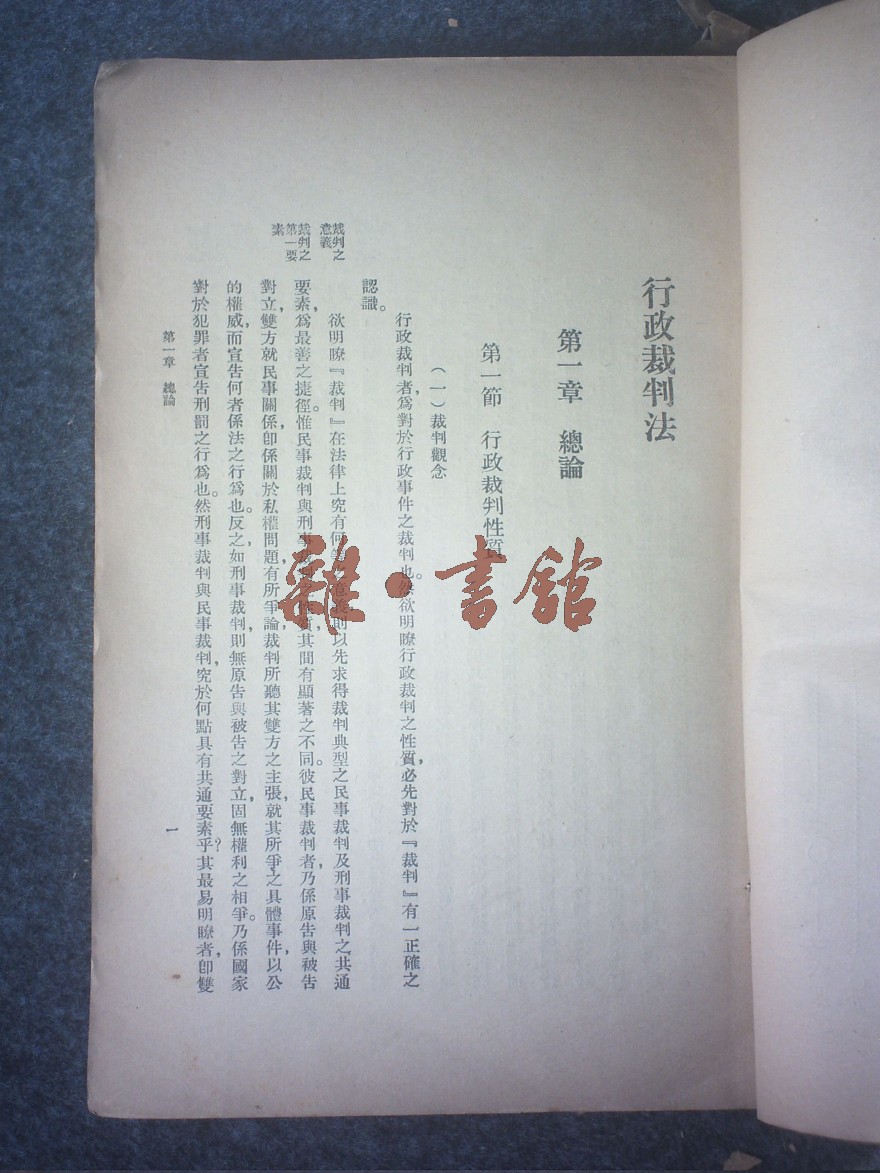 行政裁判法
第一章 總論
第一節 行政裁判性質
（一）裁判觀念
行政裁判者，爲對於行政事件之裁判也。然欲明瞭行政裁判之性質，必先對於『裁判』有一正確之
認識。
裁判之
意義
欲明瞭『裁判』在法律上究有何等之意義，則以先求得裁判典型之民事裁判及刑事裁判之共通
裁判之
第一要
素
要素，爲最善之捷徑。惟民事裁判與刑事裁判之性質，其間有顯著之不同。彼民事裁判者，乃係原告與被告
對立，雙方就民事關係，卽係關於私權問題，有所爭論，裁判所聽其雙方之主張，就其所爭之具體事件，以公
的權威，而宣告何者係法之行爲也。反之，如刑事裁判，則無原告與被告之對立，固無權利之相爭。乃係國家
對於犯罪者宣告刑罰之行爲也。然刑事裁判與民事裁判，究於何點具有共通要素乎？其最易明瞭者，卽雙
第一章 總論
一
雜·書館